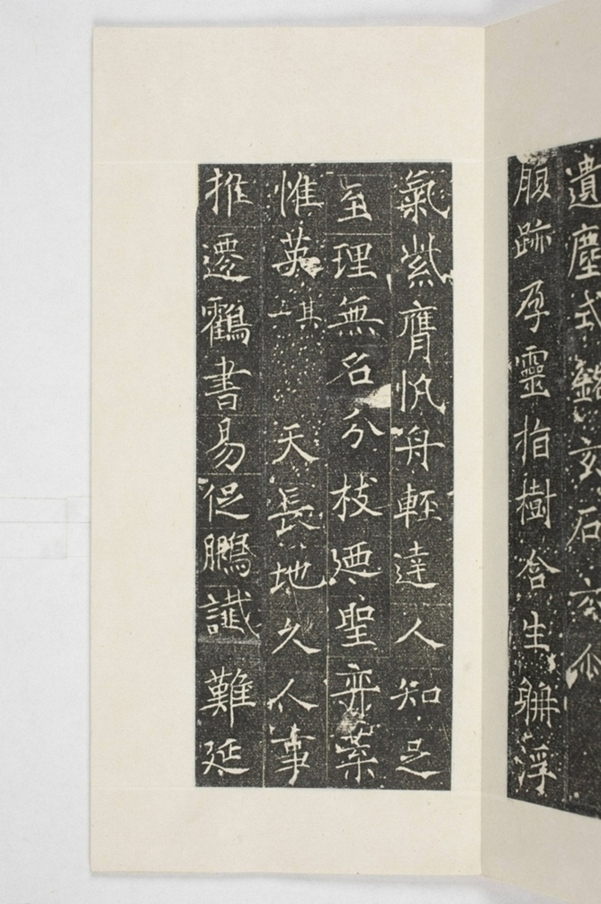 遺塵式鐫玄石云尒
服跡孕靈指樹含生軿浮
氣紫膺帆舟輕達人知足
至理無名分枝迺聖弈葉
惟英其一天長地久人事
推遷鸖書易促鵬讖難延